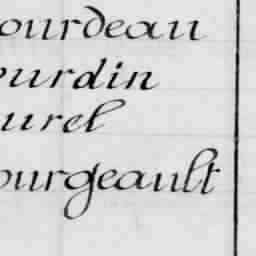 ourdeau
ourdin
urel
ourgeault